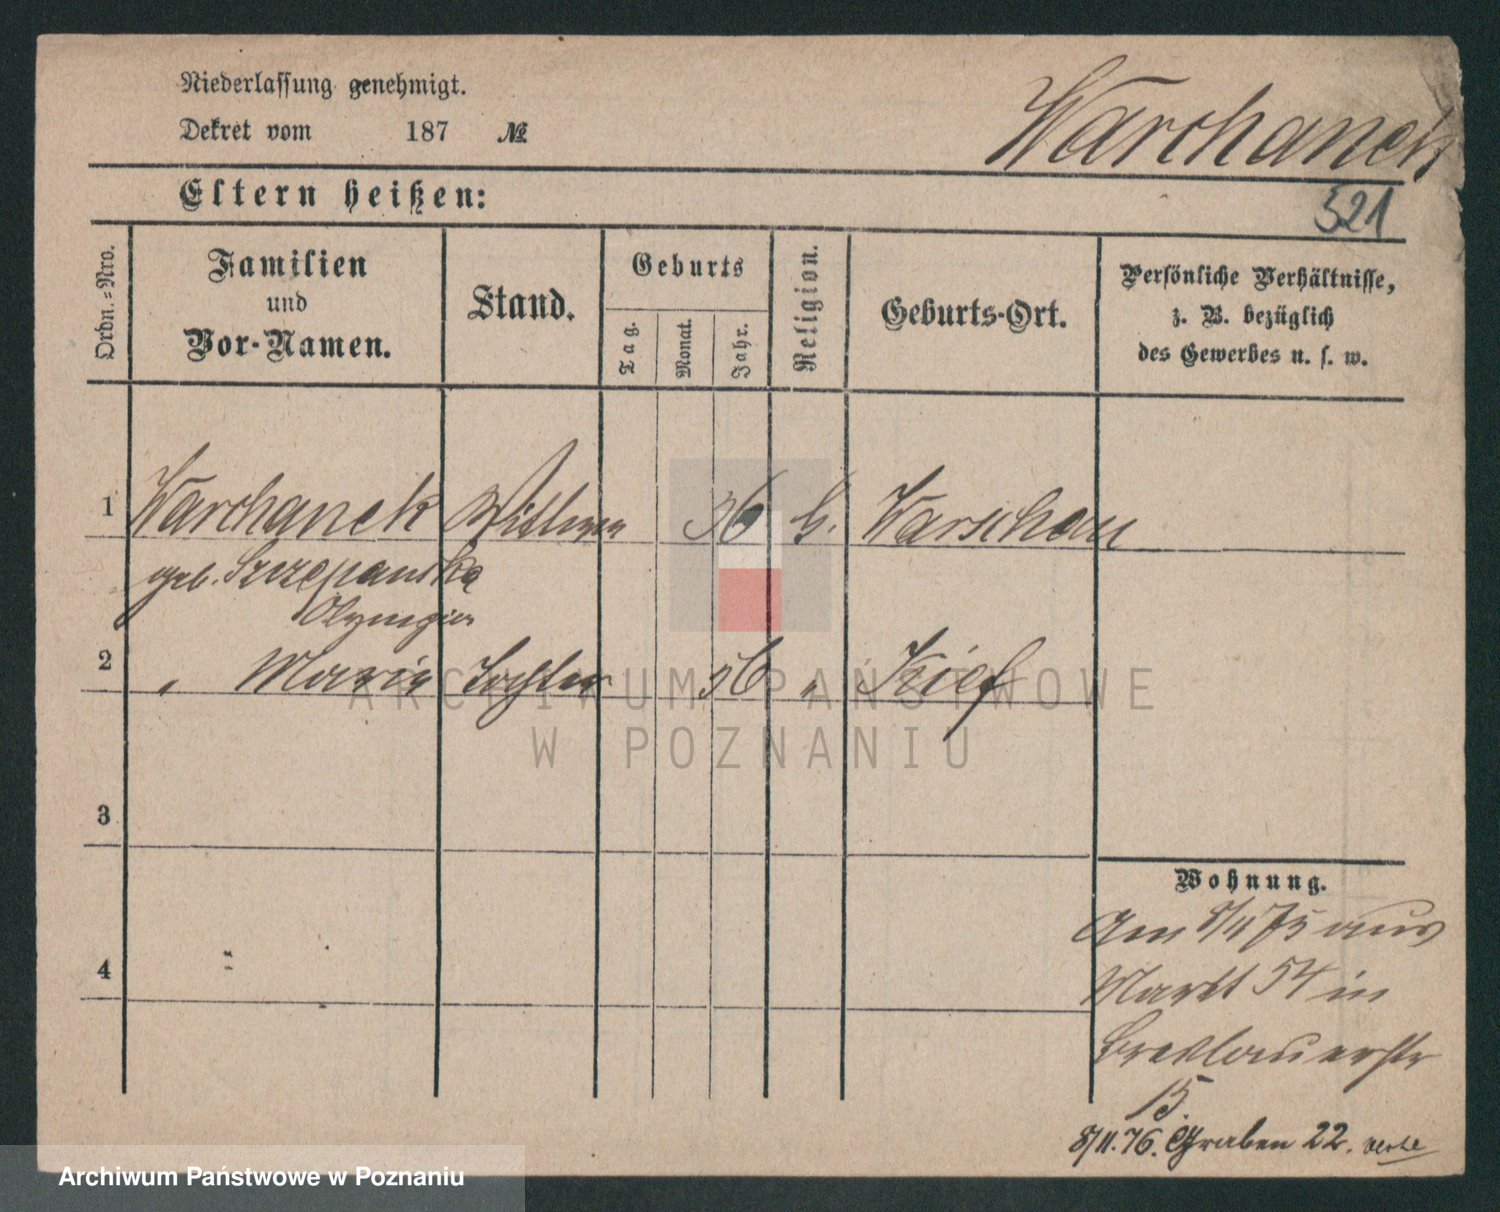 Niederlassung genehmigt.
Dekret vom 187 №
Warchanek
Eltern heißen:
521
Ordn.-Nro.
Familien
und
Vor-Namen.
Stand.
Geburts
Tag.
Monat.
Jahr.
Religion.
Geburts-Ort.
Persönliche Verhältnisse,
z. B. bezüglich
des Gewerbes u. s. w.
1 Warchanek Wittwe 36 k. Warschau
geb. Szczepanska
Olympia
2 " Marie Tochter 56 " Kief
ARCHIWUM PAŃSTWOWE
W POZNANIU
3
4
Wohnung.
Am 8/11 75 aus
Markt 54 in
Breslauerstr
15.
8/11.76. Graben 22. verte
Archiwum Państwowe w Poznaniu